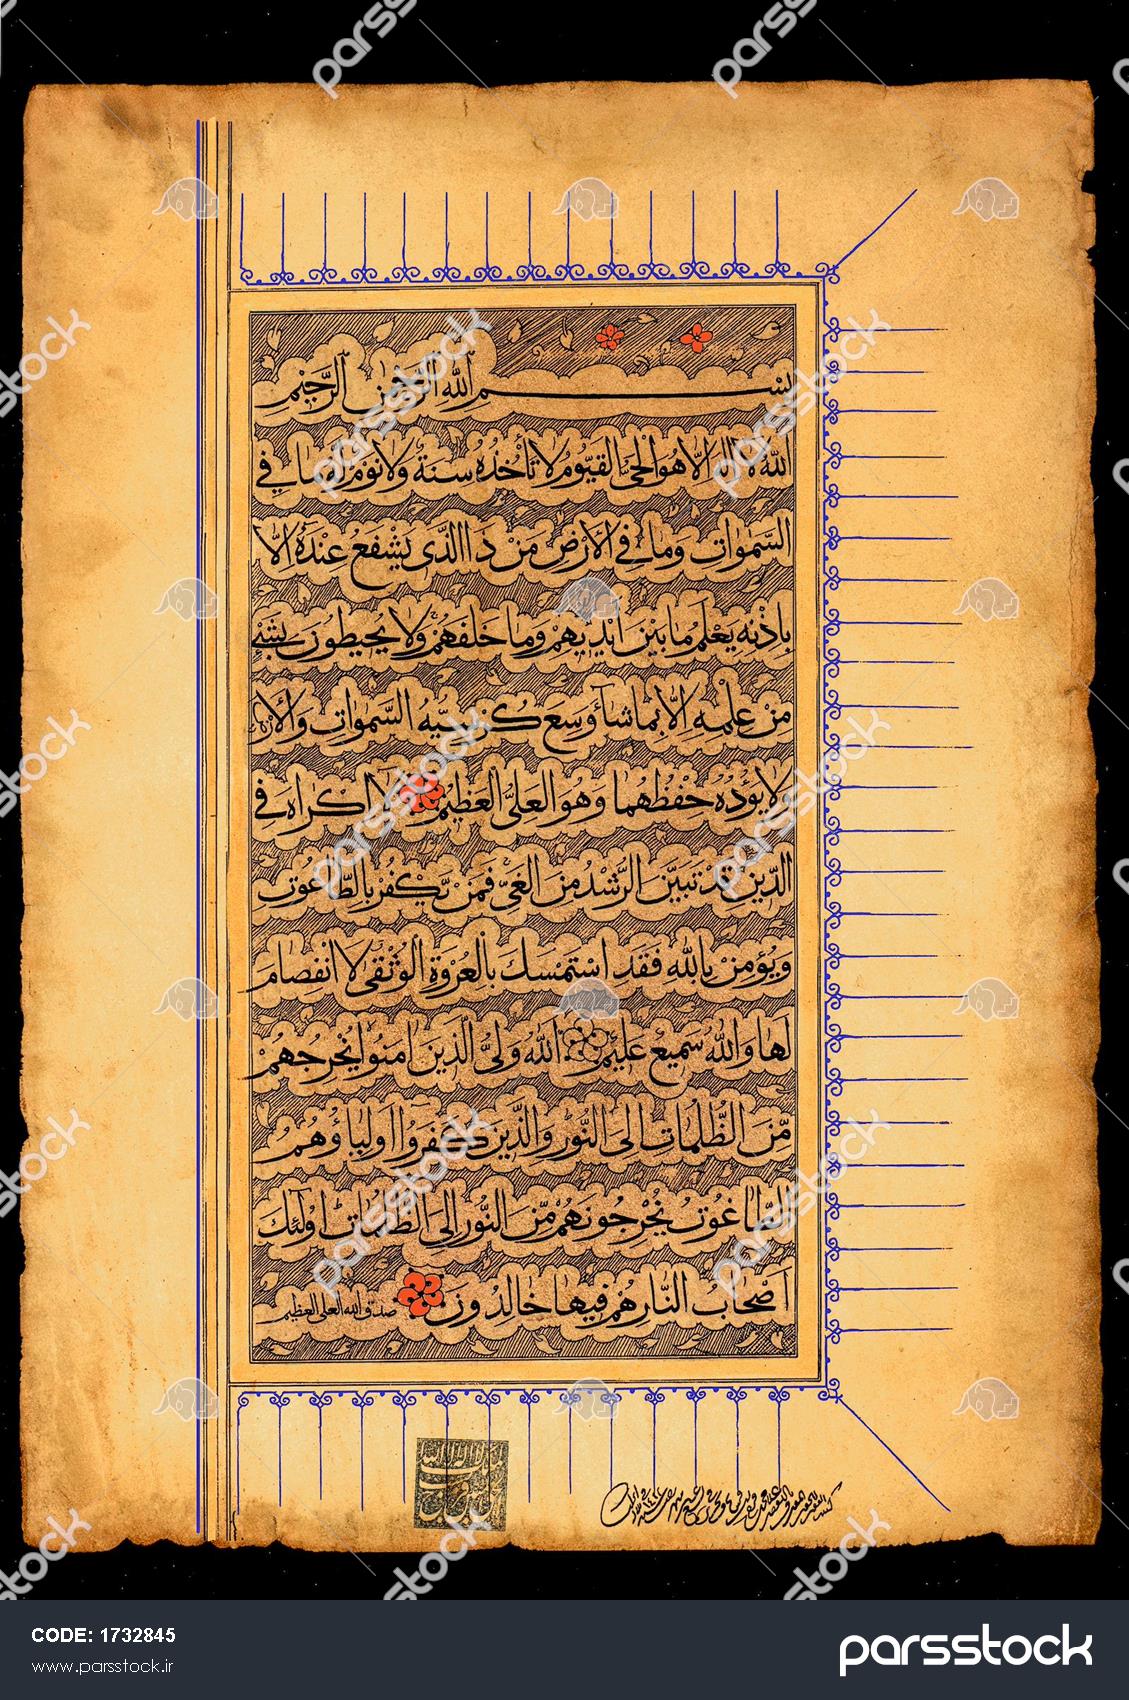 بسم الله الرحمن الرحیم
الله لا اله الا هو الحی القیوم لا تأخذه سنة ولا نوم له ما فی
السموات وما فی الأرض من ذا الذی یشفع عنده الا
باذنه یعلم ما بین ایدیهم وما خلفهم ولا یحیطون بشئ
من علمه الا بما شاء وسع کرسیه السموات والار
ولا یؤده حفظهما وهو العلی العظیم لا اکراه فی
الدین قد تبین الرشد من الغی فمن یکفر بالطاغوت
ویؤمن بالله فقد استمسک بالعروة الوثقی لا انفصام
لها والله سمیع علیم الله ولی الذین امنوا یخرجهم
من الظلمات الی النور والذین کفروا اولیاؤهم
الطاغوت یخرجونهم من النور الی الظلمات اولئک
اصحاب النار هم فیها خالدون صدق الله العلی العظیم
CODE: 1732845
www.parsstock.ir
parsstock